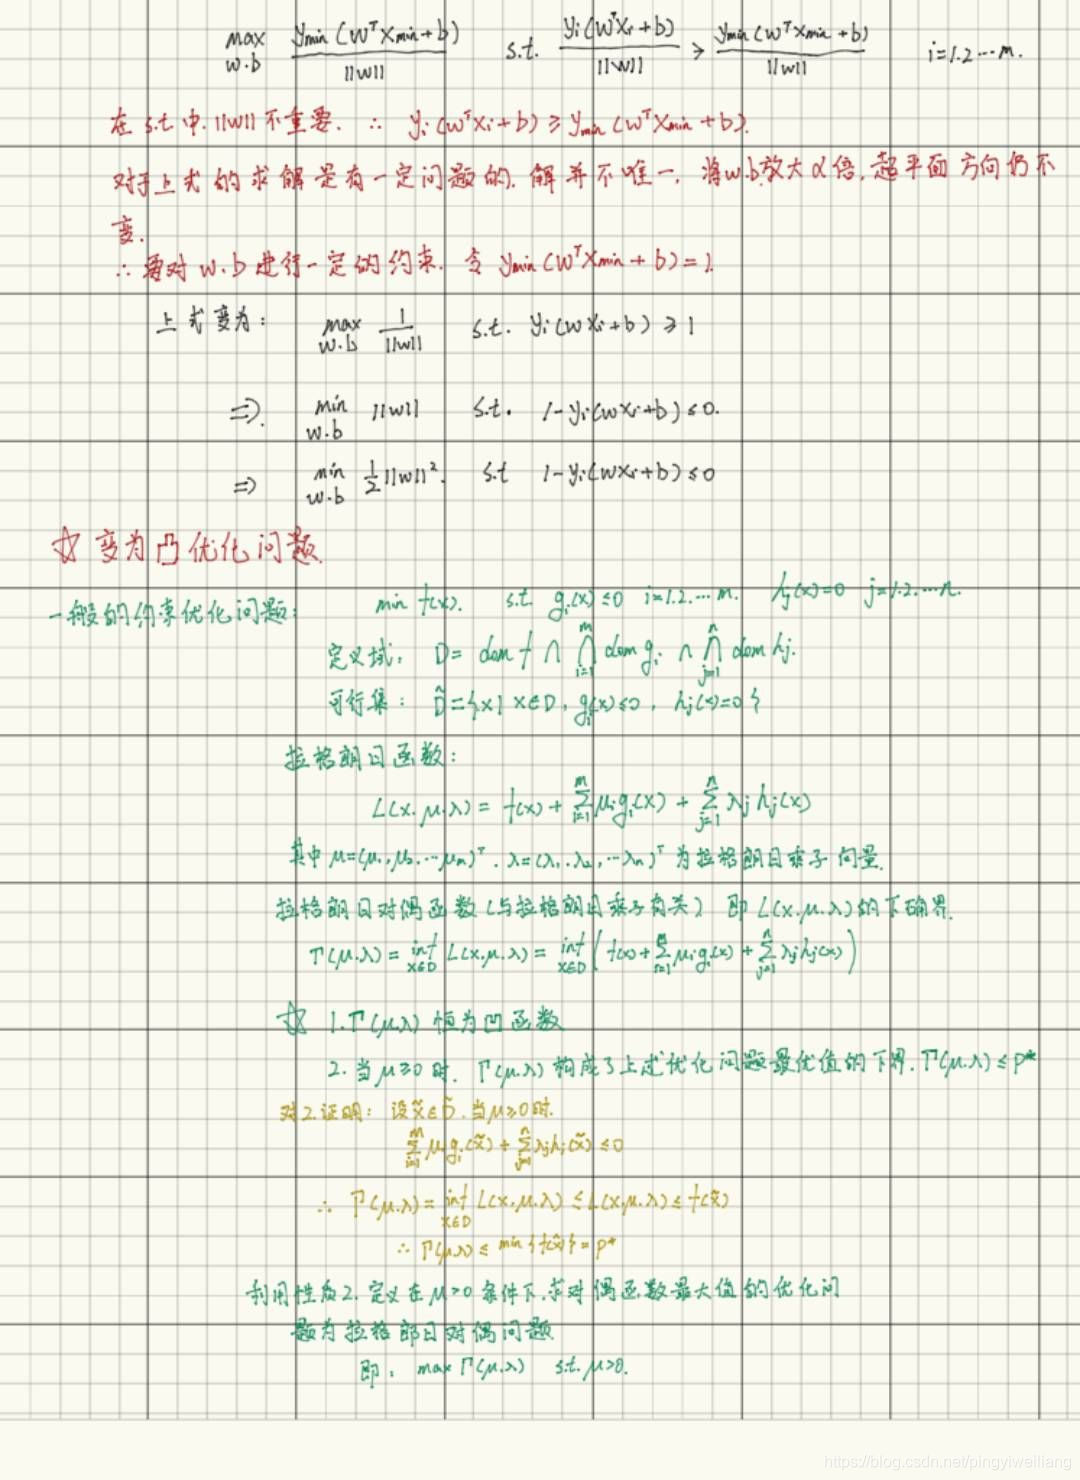 max w.b  y_min(w^T x_min+b) / ||w||  s.t.  y_i(w^T x_i+b) / ||w|| > y_min(w^T x_min+b) / ||w||  i=1.2…m.
在 s.t 中. ||w|| 不重要. ∴ y_i(w^T x_i+b) ≥ y_min(w^T x_min+b).
对于上式的求解是有一定问题的. 解并不唯一, 将w.b.放大α倍. 超平面方向仍不
变.
∴ 要对 w.b 进行一定的约束. 令 y_min(w^T x_min+b)=1.
上式变为: max w.b  1/||w||  s.t. y_i(wx_i+b) ≥ 1
⇒. min w.b  ||w||  s.t. 1-y_i(wx_i+b) ≤ 0.
⇒ min w.b  1/2||w||². s.t 1-y_i(wx_i+b) ≤ 0
☆ 变为凸优化问题.
一般的约束优化问题: min f(x). s.t g_i(x) ≤ 0 i=1.2.…m. h_j(x)=0 j=1.2.…n.
定义域: D = dom f ∩ ⋂_{i=1}^m dom g_i ∩ ⋂_{j=1}^n dom h_j.
可行集: D̃={x| x∈D, g_i(x)≤0, h_j(x)=0}
拉格朗日函数:
L(x.μ.λ) = f(x) + Σ_{i=1}^m μ_i g_i(x) + Σ_{j=1}^n λ_j h_j(x)
其中 μ=(μ₁,μ₂,…μ_m)^T. λ=(λ₁.λ₂,…λ_n)^T 为拉格朗日乘子向量.
拉格朗日对偶函数(与拉格朗日乘子有关) 即 L(x.μ.λ)的下确界.
Γ(μ.λ) = inf_{x∈D} L(x.μ.λ) = inf_{x∈D} ( f(x)+Σ_{i=1}^m μ_i g_i(x) + Σ_{j=1}^n λ_j h_j(x) )
☆ 1.Γ(μ.λ) 恒为凹函数
2. 当 μ≥0 时. Γ(μ.λ) 构成了上述优化问题最优值的下界. Γ(μ.λ) ≤ p*
对2.证明: 设x̃∈D̃. 当μ≥0时.
Σ_{i=1}^m μ_i g_i(x̃) + Σ_{j=1}^n λ_j h_j(x̃) ≤ 0
∴ Γ(μ.λ) = inf_{x∈D} L(x.μ.λ) ≤ L(x̃.μ.λ) ≤ f(x̃)
∴ Γ(μ.λ) ≤ min{f(x̃)} = p*
利用性质2. 定义在 μ>0 条件下.求对偶函数最大值的优化问
题为拉格朗日对偶问题
即: max Γ(μ.λ) s.t. μ>0.
https://blog.csdn.net/pingyiweiliang